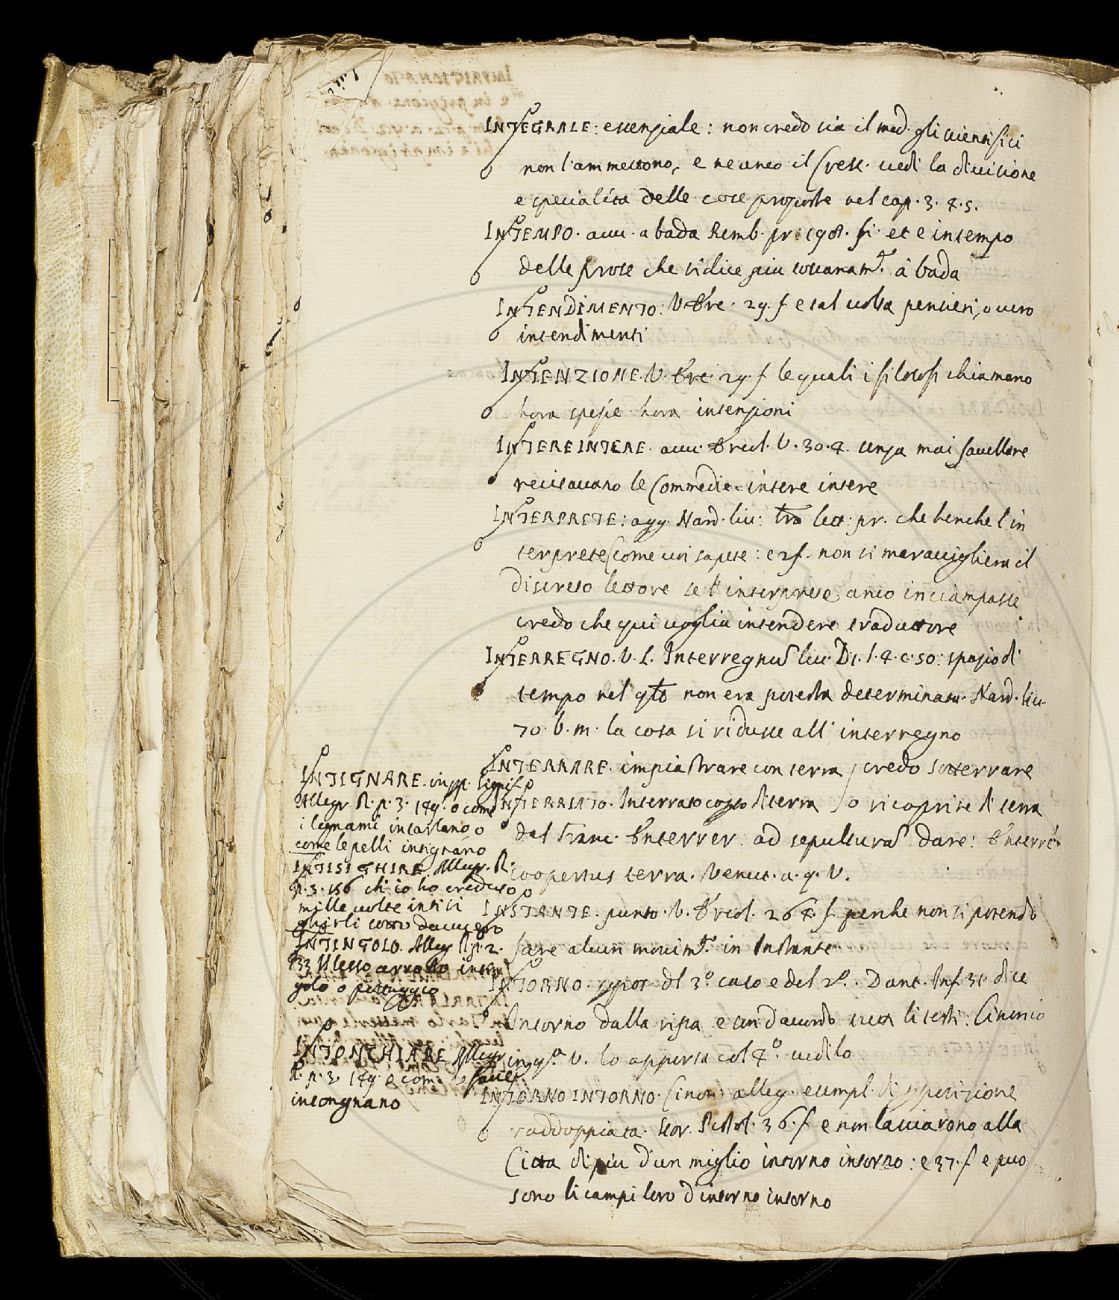 INTEGRALE: essenziale: non credo sia il med. gli scientifici
non l'ammettono, e ne anco il Cresc. vedi la divisione
e specialità delle cose proposte nel cap. 3. 4. 5.
INTEMPO. avv. a bada Remb. pr. 198. f. et e intempo
delle prose che si dice piu toscanam.te à bada
INTENDIMENTO: V. tre. 29. f e tal volta pensieri, o vero
intendimenti
INTENZIONE. V. tre. 29. f le quali i filosofi chiamano
hora spezie hora intenzioni
INTEREINTERE. avv. Ercol. V. 304. senza mai favellare
recitavano le Commedie intere intere
INTERPRETE: agg. Nard. liv: tra lett: pr. che benche l'in
terprete come voi sapete: e 2f. non si maraviglierà il
discreto lettore se l'interprete anco inciampasse
credo che qui voglia intendere traduttore
INTERREGNO. V. L. Interregnus liv. D. 1. 4. c. 50: spazio di
tempo nel qto non era potesta determinata. Nard. liv.
70. b. m. la cosa si ridusse all' interregno
INTERRARE. impiastrare con terra, credo sotterrare
INTERRIATO. Interrato cosso di terra, o ricoprite di terra
dal franc. Enterrer: ad sepultura dare: Enterré
coopertus terra. Venut. a. q. V.
INSTANTE. punto. V. Ercol. 264. f. perche non si potendo
fare alcun movim.to in Instante
INTORNO. ripor. dl 3º caso e del 2º. Dant. Inf 31 dice
Intorno dalla ripa e con d'accordo tutti li testi. Cinonio
in q.a V. lo apporta col 4º. vedilo
INTORNO INTORNO. Cinon: alleg. esempl. di ripetizione
raddoppiata. Stor. Pistol. 36. f e non lasciarono alla
Citta di piu d'un miglio intorno intorno: e 37. f e può
sono li campi loro d'intorno intorno
INTIGNARE.
Allegr. R. p. 3. 149. o come
i legnami intarlano o
come le pelli intignano
INTISICHIRE Allegr. R.
p. 3. 156 ch'io ho creduto
mille volte intisi
chirli
INTINGOLO Alleg. R. p. 2.
133 il lesso arrosto intin
golo o potaggio
INTONCHIARE Allegr.
R. p. 3. 149 o come le fave
intongnano